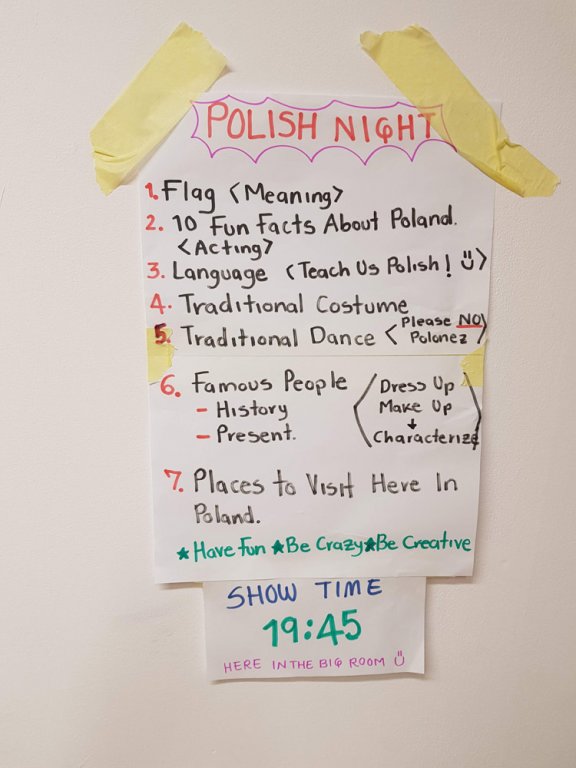 POLISH NIGHT
1. Flag <Meaning>
2. 10 Fun Facts About Poland.
<Acting>
3. Language <Teach Us Polish! ΰ>
4. Traditional Costume
5. Traditional Dance <Please NO
Polonez>
6. Famous People
- History
- Present.
<Dress Up
Make Up
↓
Characterize>
7. Places to Visit Here In
Poland.
★Have Fun ★Be Crazy★Be Creative
SHOW TIME
19:45
HERE IN THE BIG ROOM ü